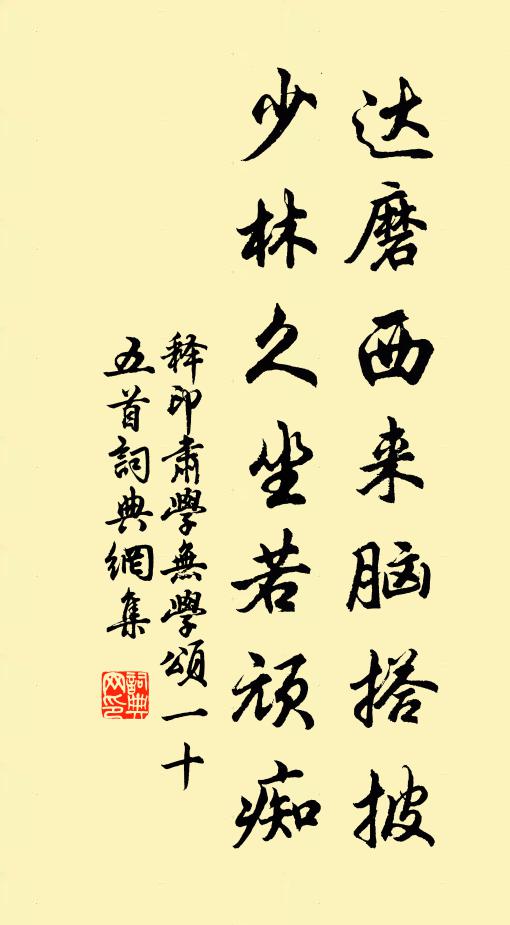 达磨西来脑搭披
少林久坐若顽痴
释印肃学無学颂一十
五首詞典網集
詞典網印